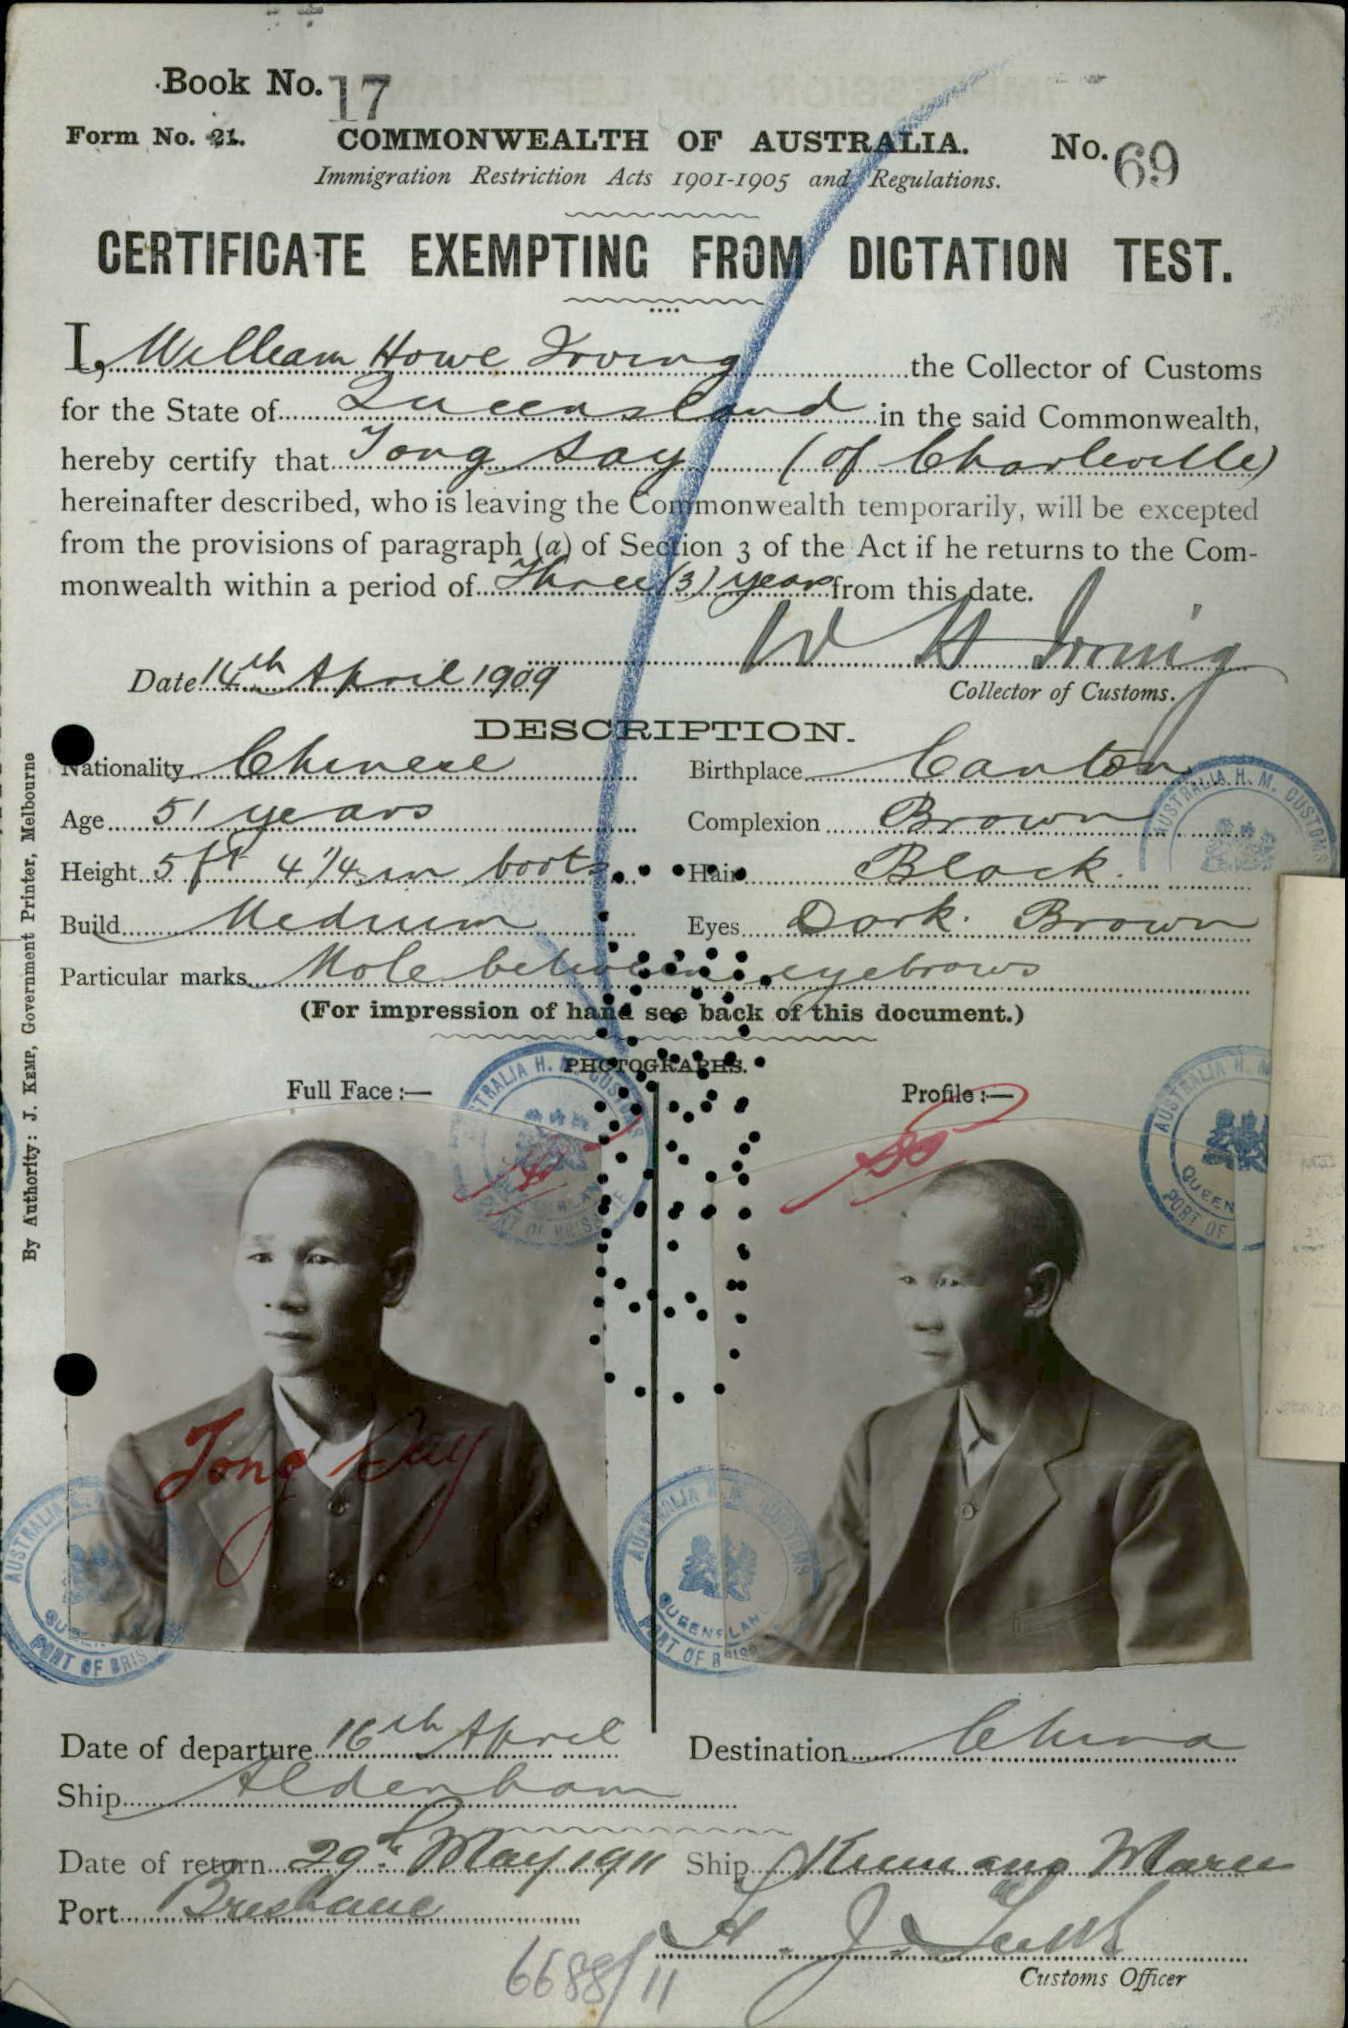 Book No. 17
Form No. 21. COMMONWEALTH OF AUSTRALIA. No. 69
Immigration Restriction Acts 1901-1905 and Regulations.
CERTIFICATE EXEMPTING FROM DICTATION TEST.
I, William Howe Irving the Collector of Customs
for the State of Queensland in the said Commonwealth,
hereby certify that Tong Say (of Charleville)
hereinafter described, who is leaving the Commonwealth temporarily, will be excepted
from the provisions of paragraph (a) of Section 3 of the Act if he returns to the Com-
monwealth within a period of Three (3) years from this date.
W H Irving
Date 14th April 1909 Collector of Customs.
DESCRIPTION.
Nationality Chinese Birthplace Canton
Age 51 years Complexion Brown
Height 5 ft 4 1/4 in boots Hair Black.
Build Medium Eyes Dark Brown
Particular marks Mole between eyebrows
(For impression of hand see back of this document.)
PHOTOGRAPHS.
Full Face :— Profile :—
AUSTRALIA H. M. CUSTOMS
AUSTRALIA H. M. CUSTOMS
PORT OF BRIS
AUSTRALIA H. M.
QUEEN
PORT OF
Tong Say
AUSTRALIA
PORT OF BRIS
AUSTRALIA H. M. CUSTOMS
QUEENSLAN
PORT OF BRIS
By Authority: J. KEMP, Government Printer, Melbourne
Date of departure 16th April Destination China
Ship Aldenham
Date of return 29th May 1911 Ship Kumano Maru
Port Brisbane
6688/11
Customs Officer